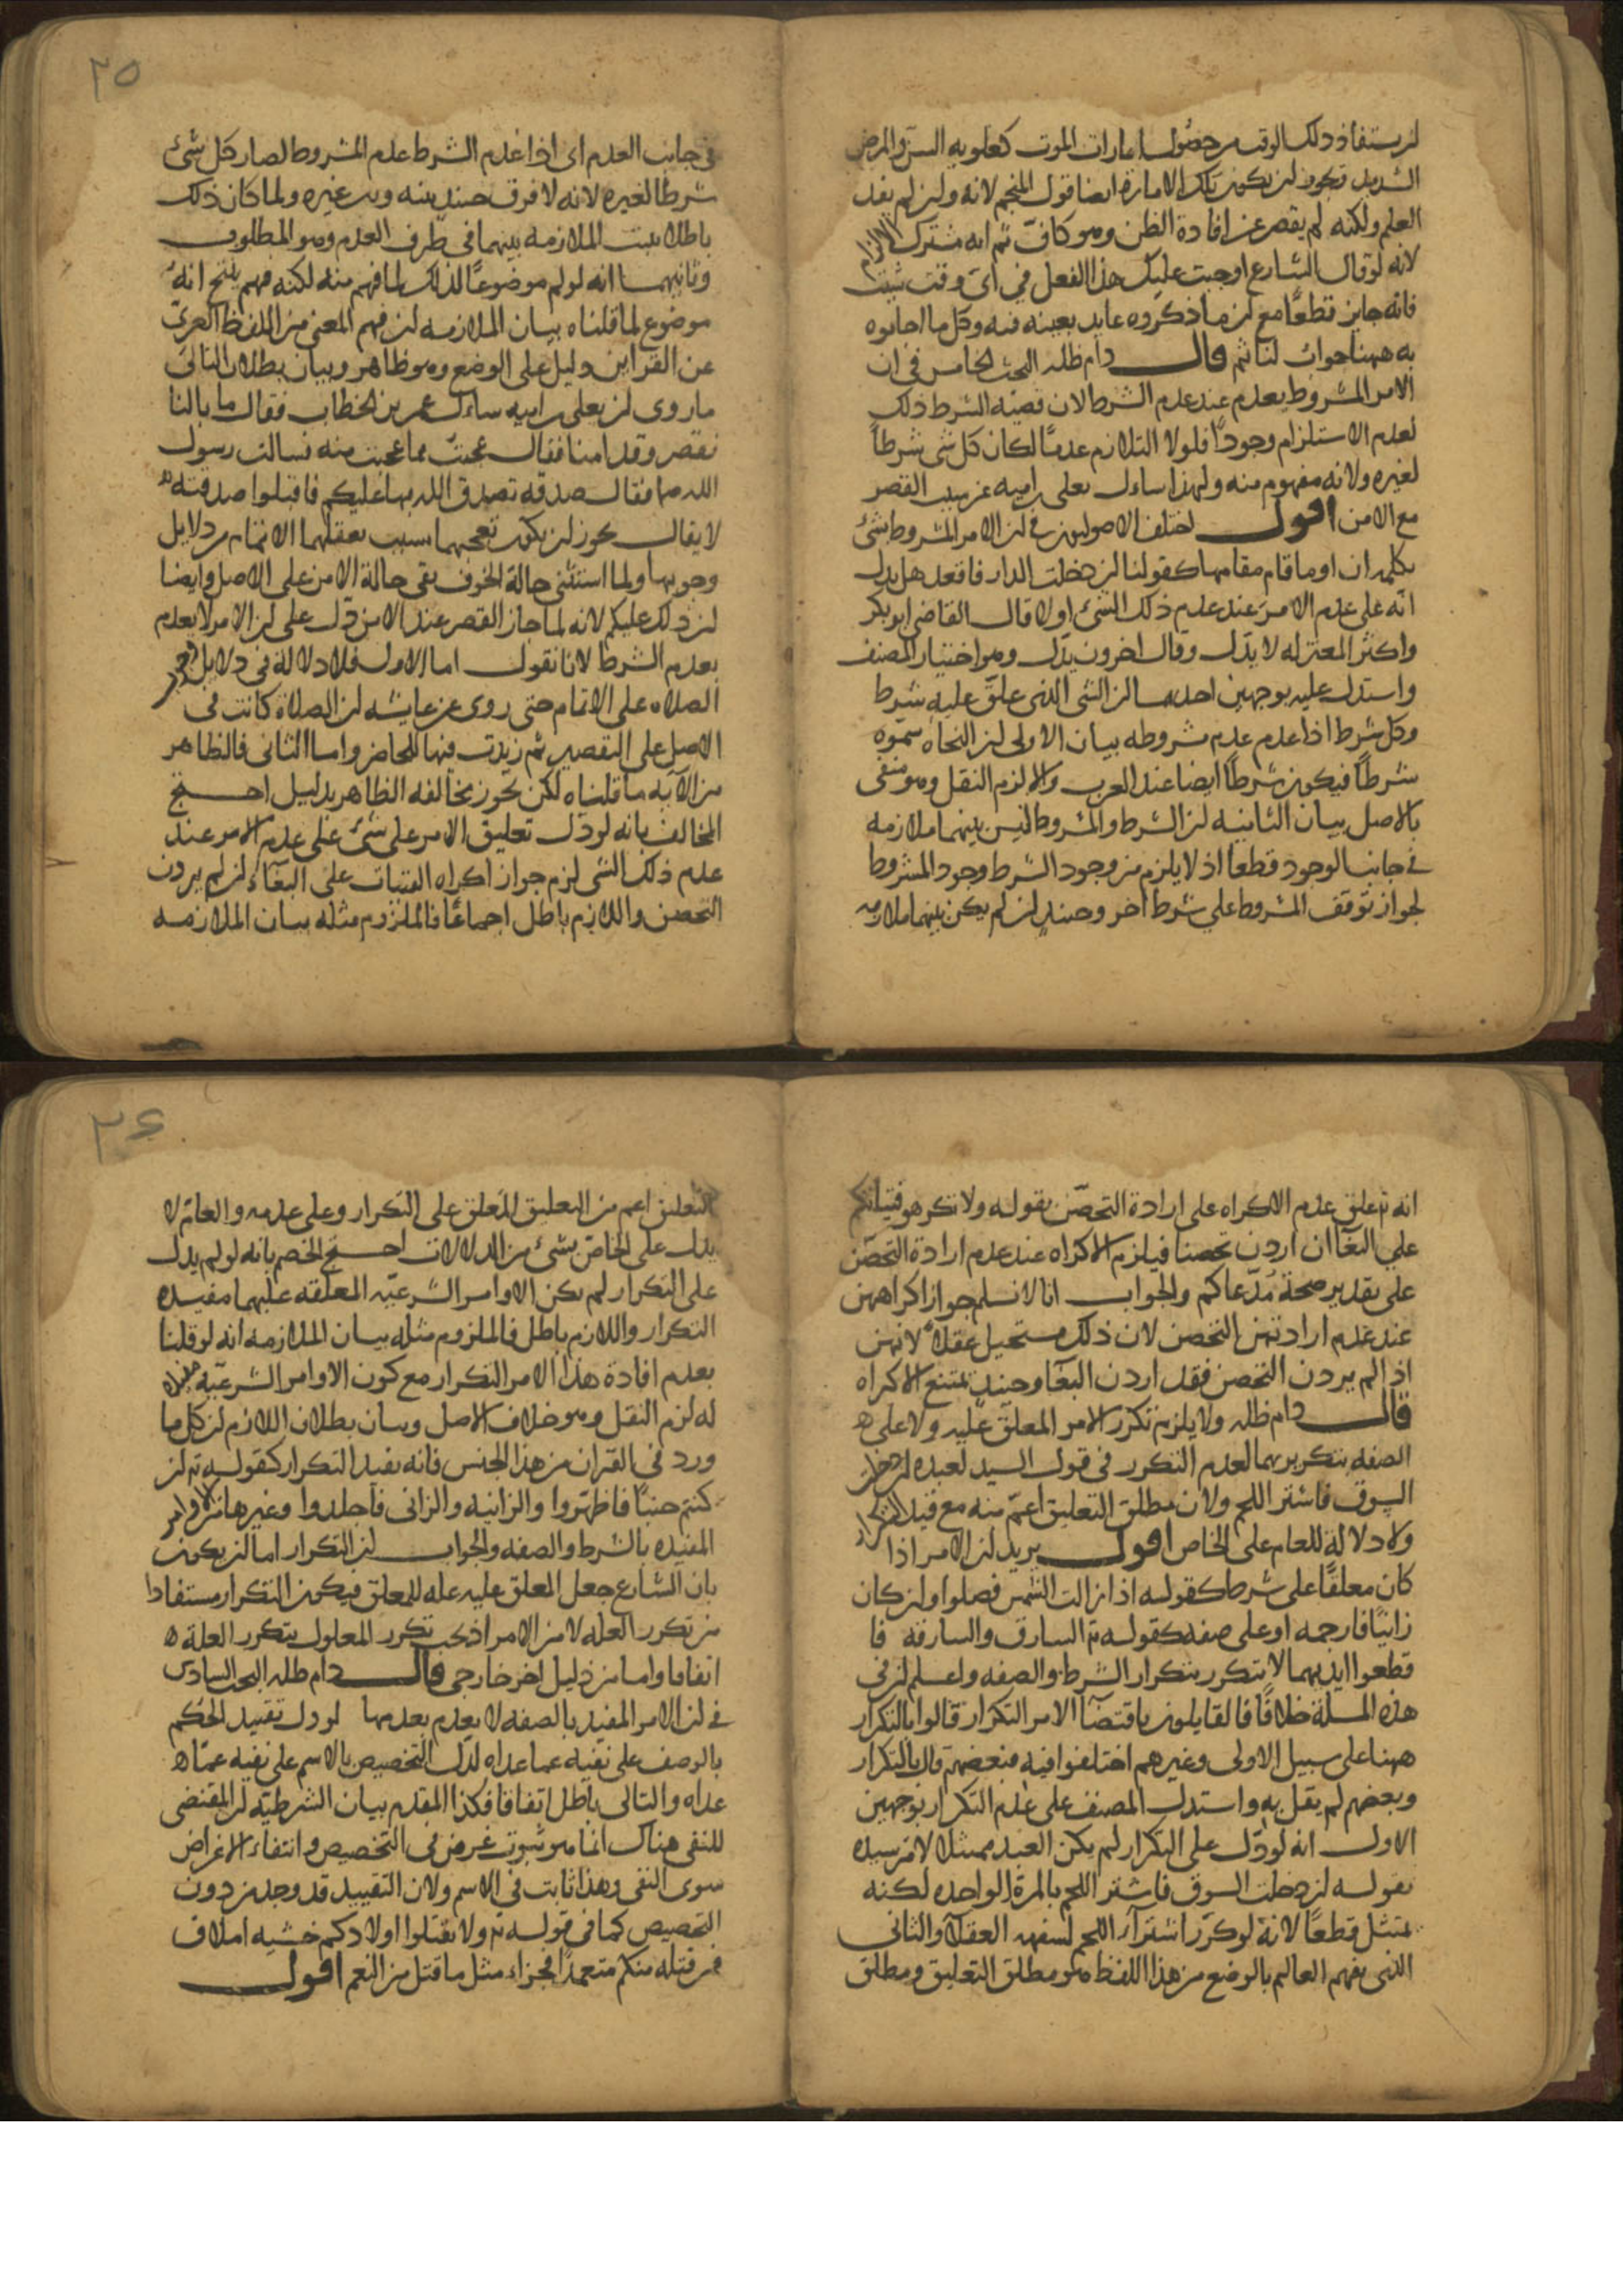 ان يستفاد ذلك الوقت من حصول امارات الموت كعلو به السن والمرض
الشديد فيجوز ان يكون تلك الامارة ايضا قول المنجم لانه وان لم يفد
العلم ولكنه لم يقصر عن افادة الظن وهو كاف ثم انه مشترك الالزام
لانه لو قال الشارع اوجبت عليك هذا الفعل في اي وقت شئت
فانه جايز قطعا مع ان ما ذكروه عايد بعينه فيه وكل ما اجابوه
به ههنا جواب لنا ثم قال دام ظله البحث الخامس في ان
الامر المشروط يعدم عند عدم الشرط لان قضيه الشرط ذلك
لعدم الاستلزام وجودا فلولا التلازم عدما لكان كل شي شرطا
لغيره ولانه مفهوم منه ولهذا سأل يعلى بن اميه عن سبب القصر
مع الامن اقول اختلف الاصوليون في ان الامر المشروط بشئ
بكلمه ان او ما قام مقامها كقولنا ان دخلت الدار فافعل هل يدل
انه على عدم الامر عند عدم ذلك الشئ اولا قال القاضي ابو بكر
واكثر المعتزله لا يدل وقال اخرون يدل وهو اختيار المصنف
واستدل عليه بوجهين احدهما ان الشي الذي علق عليه شرط
وكل شرط اذا عدم عدم مشروطه بيان الاولى ان النحاه سموه
شرطا فيكون شرطا ايضا عند العرب والا لزم النقل وهو منفي
بالاصل بيان الثانيه ان الشرط والمشروط ليس بينهما ملازمه
في جانب الوجود قطعا اذ لا يلزم من وجود الشرط وجود المشروط
لجواز توقف المشروط على شرط اخر وحينئذ ان لم يكن بينهما ملازمه
٢٥
في جانب العدم اي اذا عدم الشرط عدم المشروط لصار كل شئ
شرطا لغيره لانه لا فرق حينئذ بينه وبين غيره ولما كان ذلك
باطلا ثبت الملازمه بينهما في طرف العدم وهو المطلوب
وثانيهما انه لو لم موضوعا لذلك لما فهم منه لكنه فهم ينتج انه
موضوع لما قلناه بيان الملازمه ان فهم المعنى من اللفظ العري
عن القراين دليل على الوضع وهو ظاهر وبيان بطلان التالي
ما روى ان يعلى بن اميه سأل عمر بن الخطاب فقال ما بالنا
نقصر وقد امنا فقال عجبت مما عجبت منه فسالت رسول
الله ص فقال صدقه تصدق الله بها عليكم فاقبلوا صدقته
لا يقال يجوز ان يكون تعجبهما بسبب تعقلهما الاتمام من دلايل
وجوبها ولما استثنى حالة الخوف بقى حالة الامن على الاصل وايضا
ان ذلك عليكم لانه لما جاز القصر عند الامن دل على ان الامر لا يعدم
بعدم الشرط لانا نقول اما الاول فلا دلاله في دلايل وجوب
الصلاه على الاتمام حتى روى عن عايشه ان الصلاة كانت في
الاصل على التقصير ثم زيدت فيها للحاضر واما الثاني فالظاهر
من الآيه ما قلناه لكن يجوز مخالفه الظاهر بدليل احتج
المخالف بانه لو دل تعليق الامر على شئ على عدم الامر عند
عدم ذلك الشي لزم جواز اكراه الفتيات على البغاء ان لم يردن
التحصن واللازم باطل اجماعا فالملزوم مثله بيان الملازمه
انه تع علق عدم الاكراه على ارادة التحصن بقوله ولا تكرهو فتياتكم
على البغا ان اردن تحصنا فيلزم الاكراه عند عدم ارادة التحصن
على تقدير صحة مدعاكم والجواب انا لا نسلم جواز اكراههن
عند عدم ارادتهن التحصن لان ذلك مستحيل عقلا لانهن
اذا لم يردن التحصن فقد اردن البغا وحينئذ يمتنع الاكراه
قال دام ظله ولا يلزم تكرر الامر المعلق عليه ولا على
الصفه بتكريرهما لعدم التكرر في قول السيد لعبده ان دخلت
السوق فاشتر اللحم ولان مطلق التعليق اعم منه مع قيد التكرار
ولا دلالة للعام على الخاص اقول يريد ان الامر اذا
كان معلقا على شرط كقوله اذا زالت الشمس فصلوا وان كان
زانيا فارجمه او على صفه كقوله تع السارق والسارقه فا
قطعوا ايديهما لا يتكرر بتكرار الشرط والصفه واعلم ان في
هذه المسلة خلافا فالقايلون باقتضآ الامر التكرار قالوا بالتكرار
ههنا على سبيل الاولى وغيرهم اختلفوا فيه فبعضهم قال بالتكرار
وبعضهم لم يقل به واستدل المصنف على عدم التكرار بوجهين
الاول انه لو دل على التكرار لم يكن العبد ممتثلا لامر سيده
بقوله ان دخلت السوق فاشتر اللحم بالمرة الواحده لكنه
يمتثل قطعا لانه لو كرر اشترآء اللحم لسفهه العقلآ والثاني
الذي يفهم العالم بالوضع من هذا اللفظ هو مطلق التعليق ومطلق
٢٦
التعليق اعم من التعليق المعلق على التكرار وعلى عدمه والعام لا
يدل على الخاص بشئ من الدلالات احتج الخصم بانه لو لم يدل
على التكرار لم يكن الاوامر الشرعيه المعلقه عليهما مفيده
التكرار واللازم باطل فالملزوم مثله بيان الملازمه انه لو قلنا
بعدم افادة هذا الامر التكرار مع كون الاوامر الشرعيه مفيده
له لزم النقل وهو خلاف الاصل وبيان بطلان اللازم ان كل ما
ورد في القران من هذا الجنس فانه يفيد التكرار كقوله تع ان
كنتم جنبا فاطهروا والزانيه والزاني فاجلدوا وغيرها من الاوامر
المقيده بالشرط والصفه والجواب ان التكرار اما ان يكون
بان الشارع جعل المعلق عليه عله للمعلق فيكون التكرار مستفادا
من تكرر العله لا من الامر اذ يجب تكرر المعلول بتكرر العلة
اتفاقا واما من دليل اخر خارجي قال دام ظله البحث السادس
في ان الامر المقيد بالصفه لا يعدم بعدمها لو دل تقييد الحكم
بالوصف على نفيه عما عداه لدل التخصيص بالاسم على نفيه عما
عداه والتالي باطل اتفاقا فكذا المقدم بيان الشرطيه ان المقتضى
للنفى هناك انما هو ثبوت غرض في التخصيص وانتفاء الاغراض
سوى النفى وهذا ثابت في الاسم ولان التقييد قد وجد من دون
التخصيص كما في قوله تع ولا تقتلوا اولادكم خشيه املاق
فمن قتله منكم متعمدا فجزاء مثل ما قتل من النعم اقول